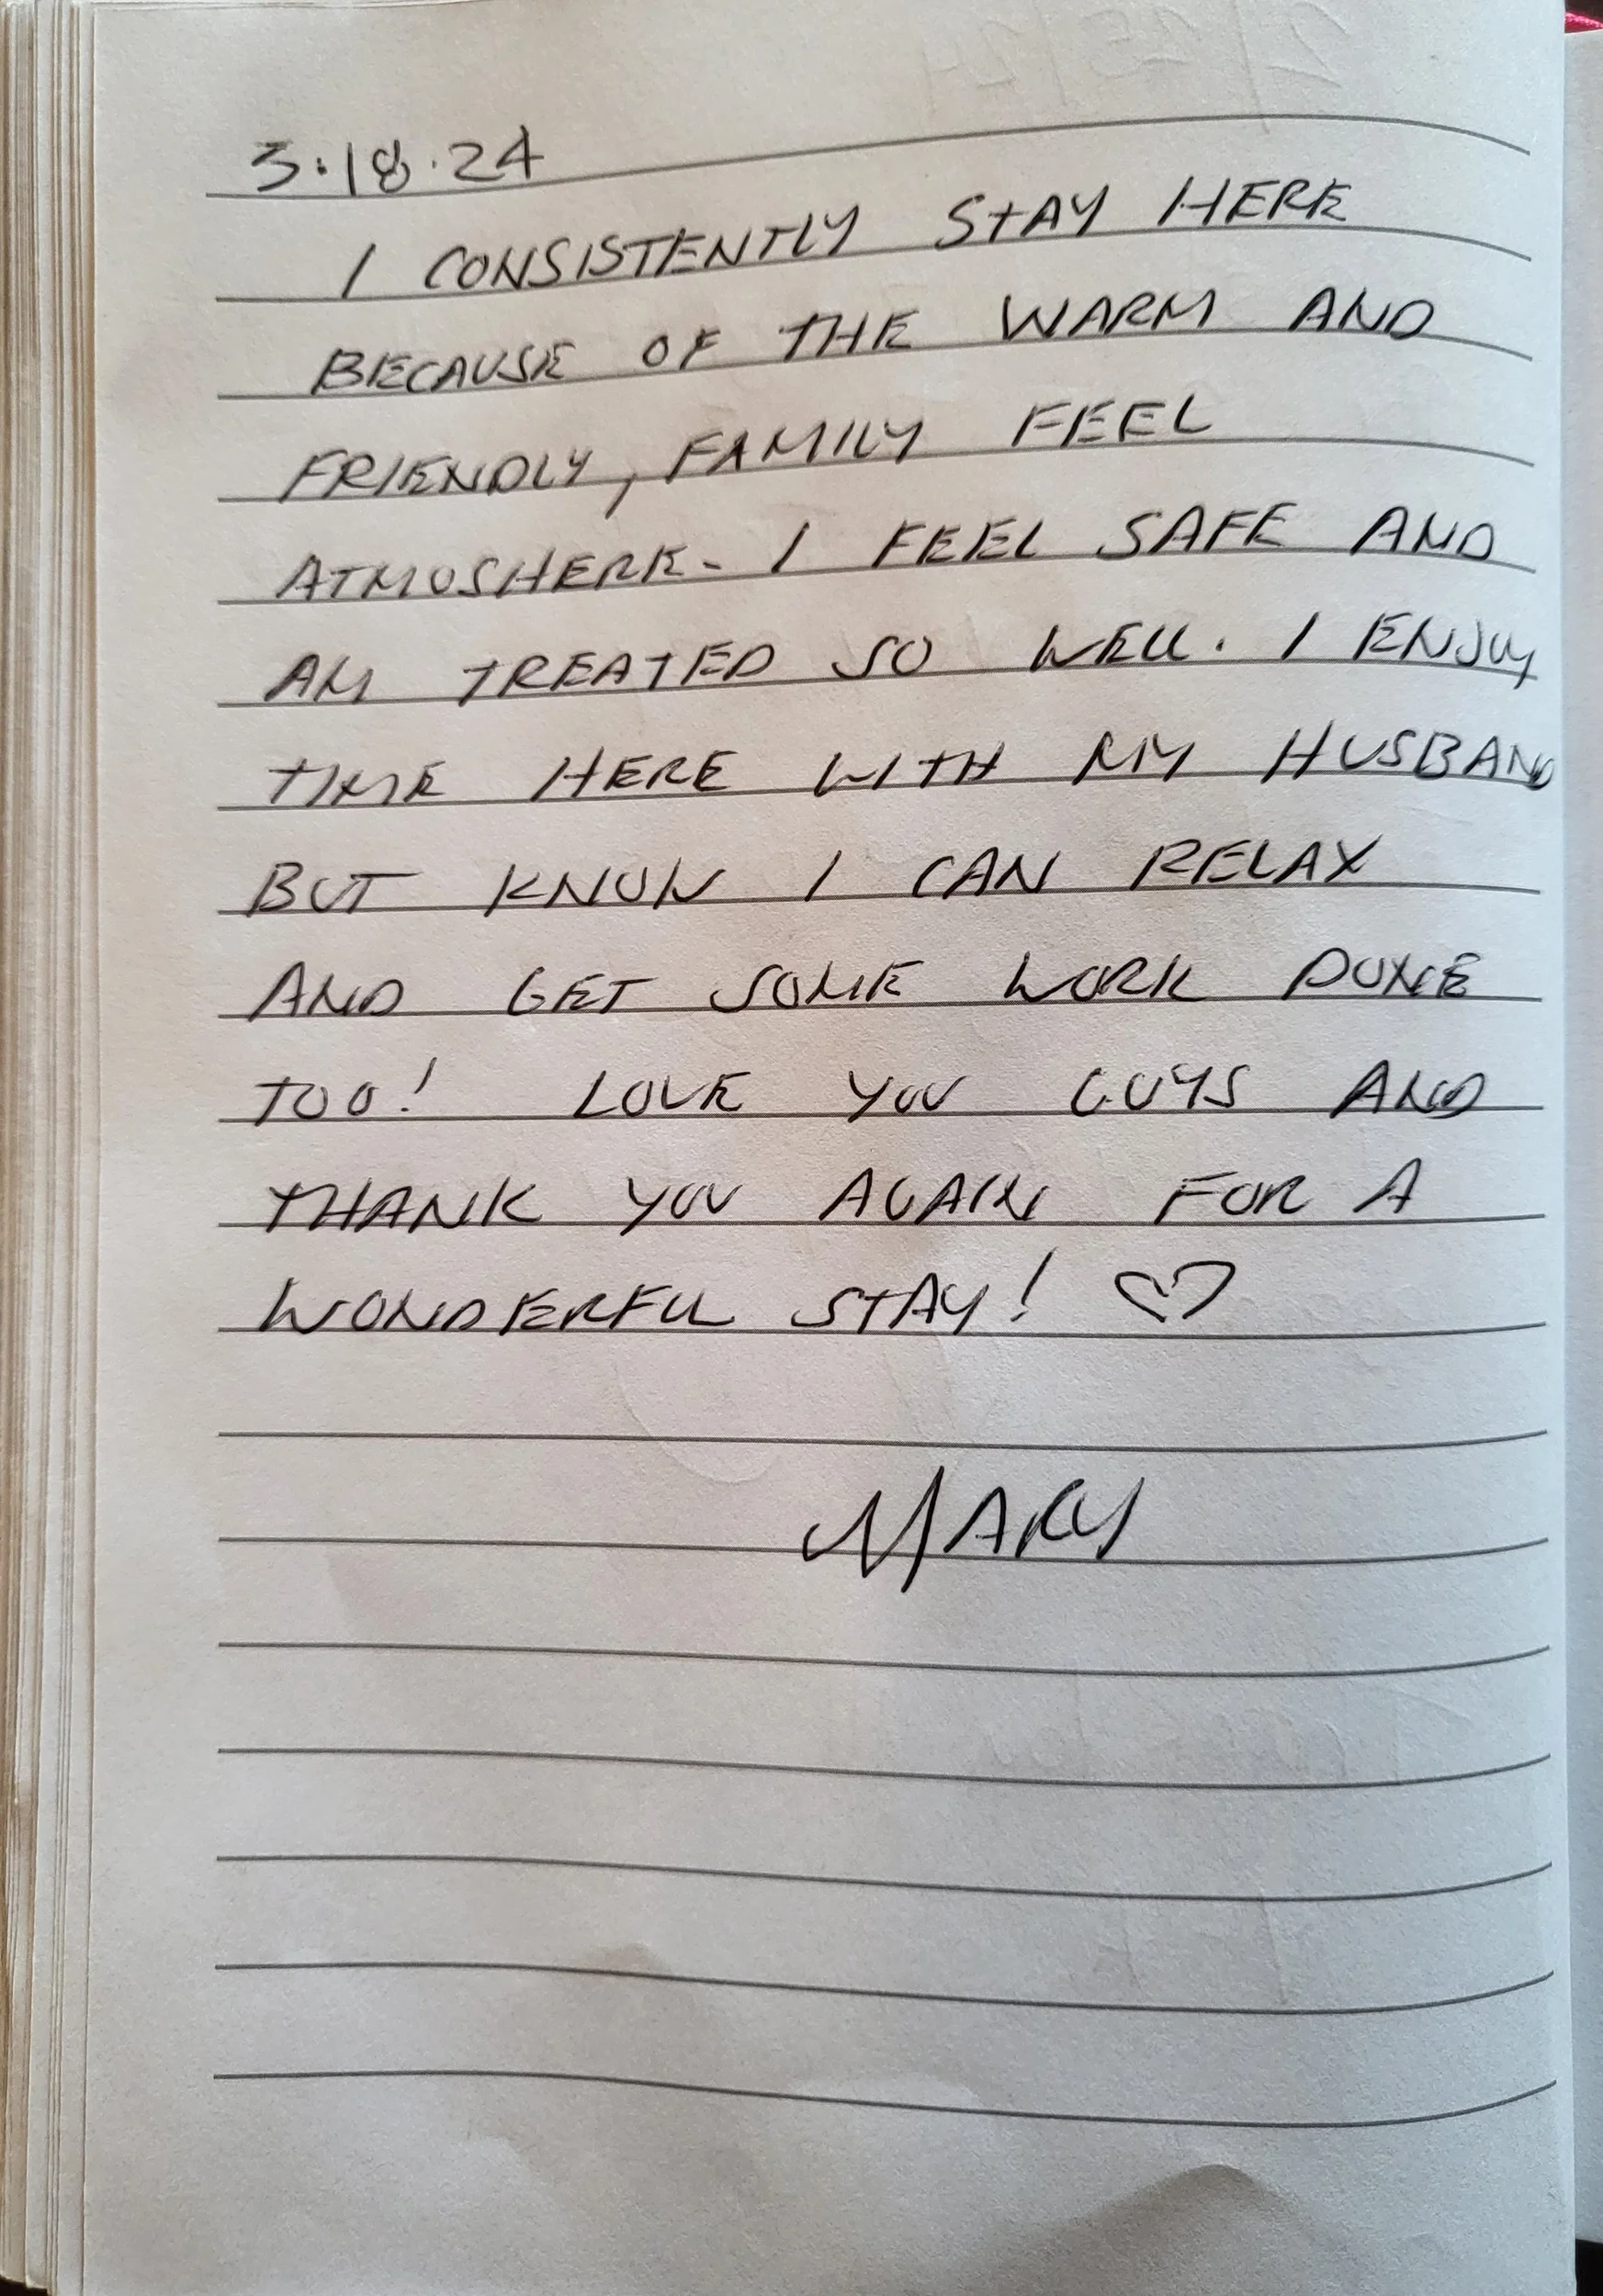 3.18.24
I CONSISTENTLY STAY HERE
BECAUSE OF THE WARM AND
FRIENDLY, FAMILY FEEL
ATMOSHERE. I FEEL SAFE AND
AM TREATED SO WELL. I ENJOY
TIME HERE WITH MY HUSBAND
BUT KNOW I CAN RELAX
AND GET SOME WORK DONE
TOO! LOVE YOU GUYS AND
THANK YOU AGAIN FOR A
WONDERFUL STAY! ♡
MARY